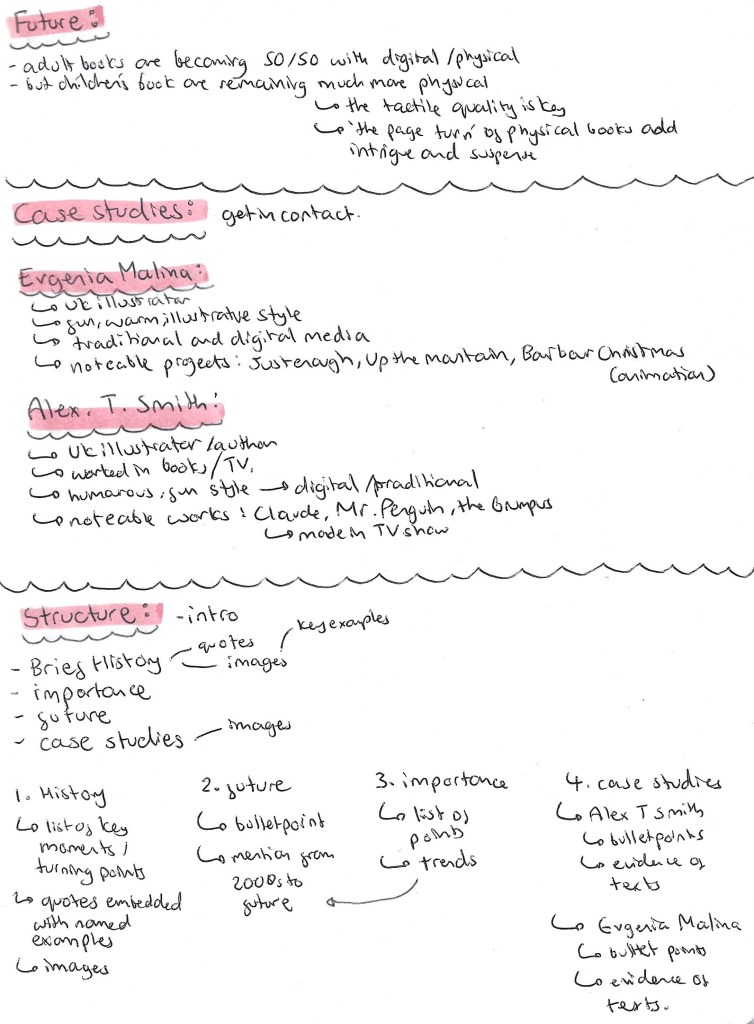 Future:
- adult books are becoming 50/50 with digital/physical
- but children's book are remaining much more physical
↳ the tactile quality is key
↳ 'the page turn' of physical books add
intrigue and suspense
Case studies: get in contact.
Evgenia Malina:
↳ UK illustrator
↳ fun, warm, illustrative style
↳ traditional and digital media
↳ noteable projects: Just enough, Up the mantain, Barbar Christmas
(animation)
Alex. T. Smith:
↳ UK illustrator/author
↳ worked in books/TV.
↳ humorous, fun style → digital/traditional
↳ noteable works: Claude, Mr. Penguin, the Grumpus
↳ made in TV show
Structure: - intro
- Brief History quotes images key examples
- importance
- future
- case studies images
1. History
↳ list of key
moments/
turning points
↳ quotes embedded
with named
examples
↳ images
2. future
↳ bulletpoint
↳ mention from
2000s to
future
3. importance
↳ list of
points
↳ trends
4. case studies
↳ Alex T Smith
↳ bulletpoints
↳ evidence of
texts
↳ Evgenia Malina
↳ bullet points
↳ evidence of
texts.